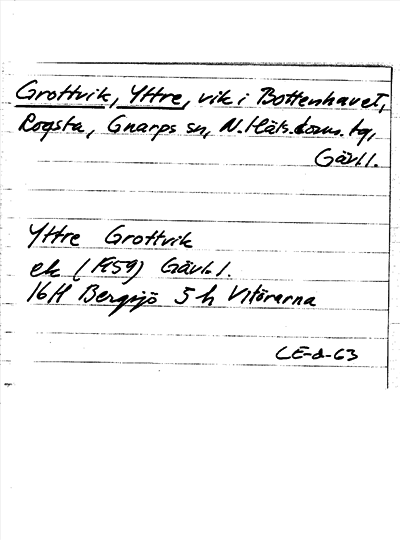 Grottvik, Yttre, vik i Bottenhavet,
Rogsta, Gnarps sn, N. Häls. doms. tg,
Gävl.l.
Yttre Grottvik
ek (1959) Gävl.l.
16H Bergsjö 5h Vitörarna
LE-d-63